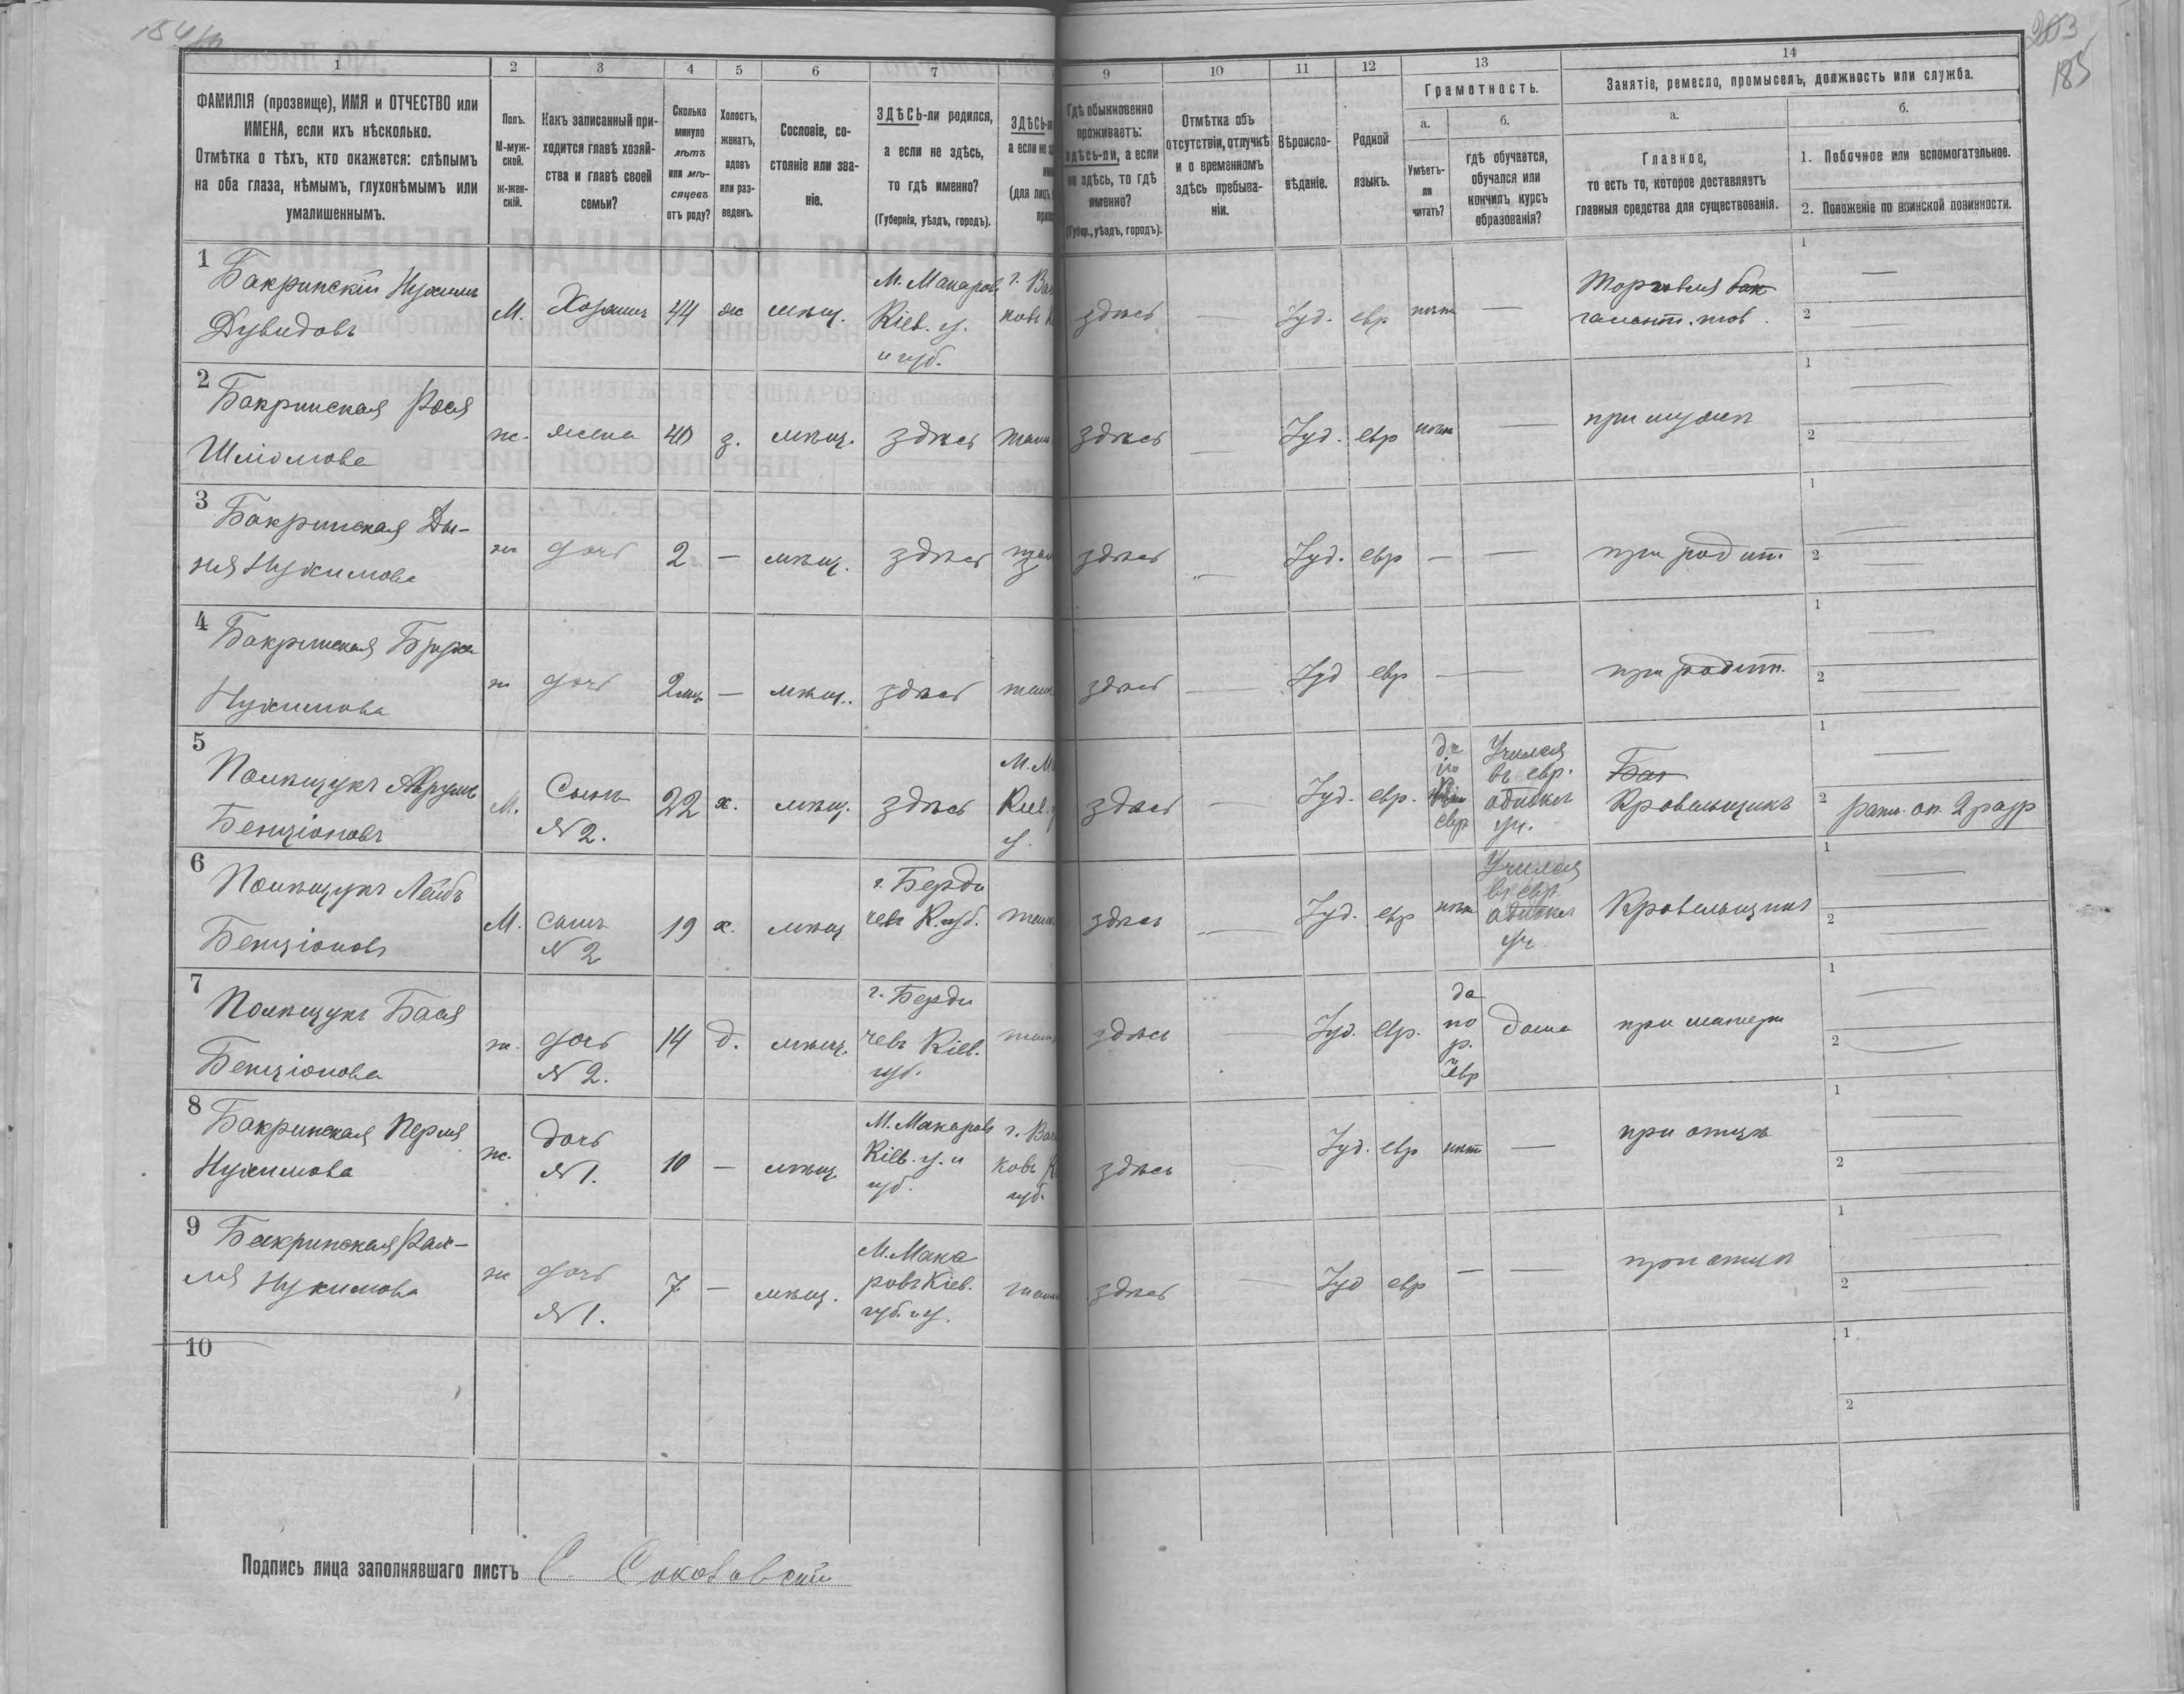 203
185
1 2 3 4 5 6 7 9 10 11 12 13 14
ФАМИЛІЯ (прозвище), ИМЯ и ОТЧЕСТВО или
ИМЕНА, если ихъ нѣсколько.
Отмѣтка о тѣхъ, кто окажется: слѣпымъ
на оба глаза, нѣмымъ, глухонѣмымъ или
умалишеннымъ.
Полъ.
М-муж-
ской.
ж-жен-
скій.
Какъ записанный при-
ходится главѣ хозяй-
ства и главѣ своей
семьи?
Сколько
минуло
лѣтъ
или мѣ-
сяцевъ
отъ роду?
Холостъ,
женатъ,
вдовъ
или раз-
веденъ.
Сословіе, со-
стояніе или зва-
ніе.
ЗДѢСЬ-ли родился,
а если не здѣсь,
то гдѣ именно?
(Губернія, уѣздъ, городъ).
ЗДѢСЬ-
а если не
(для лицъ
Гдѣ обыкновенно
проживаетъ:
здѣсь-ли, а если
не здѣсь, то гдѣ
именно?
(Губер., уѣздъ, городъ).
Отмѣтка объ
отсутствіи, отлучкѣ
и о временномъ
здѣсь пребыва-
ніи.
Вѣроиспо-
вѣданіе.
Родной
языкъ.
Грамотность.
а.
Умѣетъ-
ли
читать?
б.
гдѣ обучается,
обучался или
кончилъ курсъ
образованія?
Занятіе, ремесло, промыселъ, должность или служба.
а.
Главное,
то есть то, которое доставляетъ
главныя средства для существованія.
б.
1. Побочное или вспомогательное.
2. Положеніе по воинской повинности.
1 Бакринскій Нухимъ
Дувидовъ
М. Хозяинъ 44 ж мѣщ.
М. Макаровъ
Кіев. у.
и губ.
здѣсь — Іуд. евр нѣтъ —
Торговля бак
галант. тов.
1 —
2 —
2 Бакринская Рося
Шліомова
ж. жена 40 з. мѣщ. здѣсь тамъ здѣсь — Іуд. евр нѣтъ — при мужѣ
1 —
2 —
3 Бакринская Ды-
ня Нухимова
ж дочь 2 — мѣщ. здѣсь здѣсь — Іуд. евр — — при родит.
1 —
2 —
4 Бакринская Бруха
Нухимова
ж дочь 2 мѣс — мѣщ. здѣсь тамъ здѣсь — Іуд евр — — при родит.
1 —
2 —
5 Полищукъ Аврумъ
Бенціоновъ
М. Сынъ
№ 2.
22 х. мѣщ. здѣсь
М. М
Кіев.
у.
здѣсь — Іуд. евр.
да
по
евр
Учился
въ евр.
уч.
Бак
Кровельщикъ
1 —
2 ратн. оп. 2 разр
6 Полищукъ Лейбъ
Бенціоновъ
М. сынъ
№ 2
19 х. мѣщ
г. Берди
чевъ К. губ.
тамъ здѣсь — Іуд. евр нѣтъ
Учился
въ евр.
уч.
Кровельщикъ
1 —
2 —
7 Полищукъ Бася
Бенціонова
ж. дочь
№ 2.
14 д. мѣщ.
г. Берди
чевъ Кіев.
губ.
тамъ здѣсь — Іуд. евр.
да
по
р.
и
евр
дома при матери
1 —
2 —
8 Бакринская Перля
Нухимова
ж. дочь
№ 1.
10 — мѣщ
М. Макаровъ
Кіев. у. и
губ.
г. Ва
ковъ К
губ.
здѣсь — Іуд. евр нѣт — при отцѣ
1 —
2 —
9 Бакринская Рах-
ля Нухимова
ж дочь
№ 1.
7 — мѣщ.
М. Мака
ровъ Кіев.
губ. и у.
тамъ здѣсь — Іуд евр — — при отцѣ
1 —
2 —
10
1
2
Подпись лица заполнявшаго листъ С.